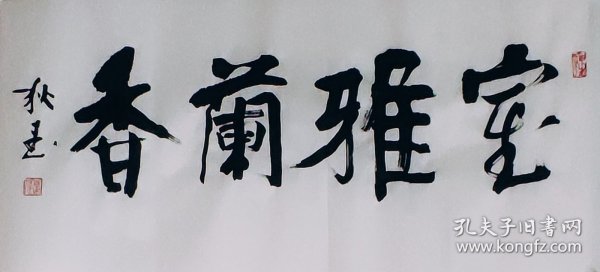 室雅蘭香
孔夫子旧書网
www.kongfz.com